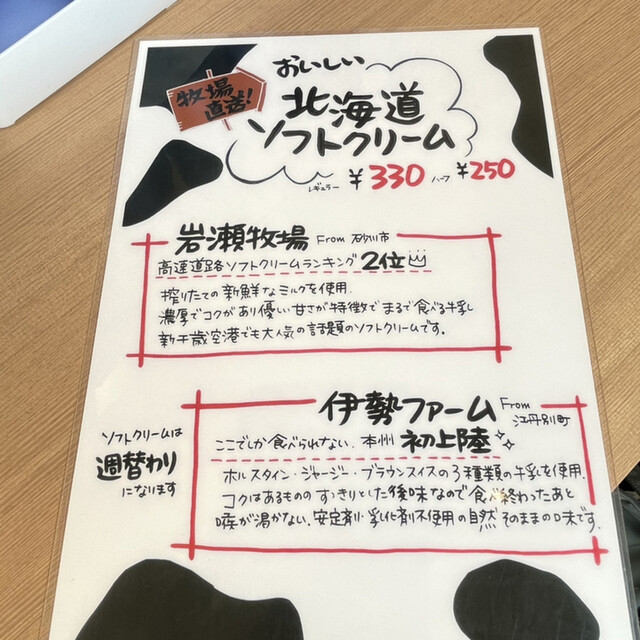 牧場
直送!
おいしい
北海道
ソフトクリーム
レギュラー ¥330 ハーフ ¥250
岩瀬牧場 From 砂川市
高速道路ソフトクリームランキング 2位
搾りたての新鮮なミルクを使用.
濃厚でコクがあり優しい甘さが特徴でまるで食べる牛乳
新千歳空港でも大人気の話題のソフトクリームです。
伊勢ファーム From
江丹別町
ここでしか食べられない. 本州 初上陸
ソフトクリームは
週替わり
になります
ホルスタイン・ジャージー・ブラウンスイスの3種類の牛乳を使用.
コクはあるものの すっきりとした後味なので食べ終わったあと
喉が渇かない. 安定剤・乳化剤不使用の自然そのままの味です.